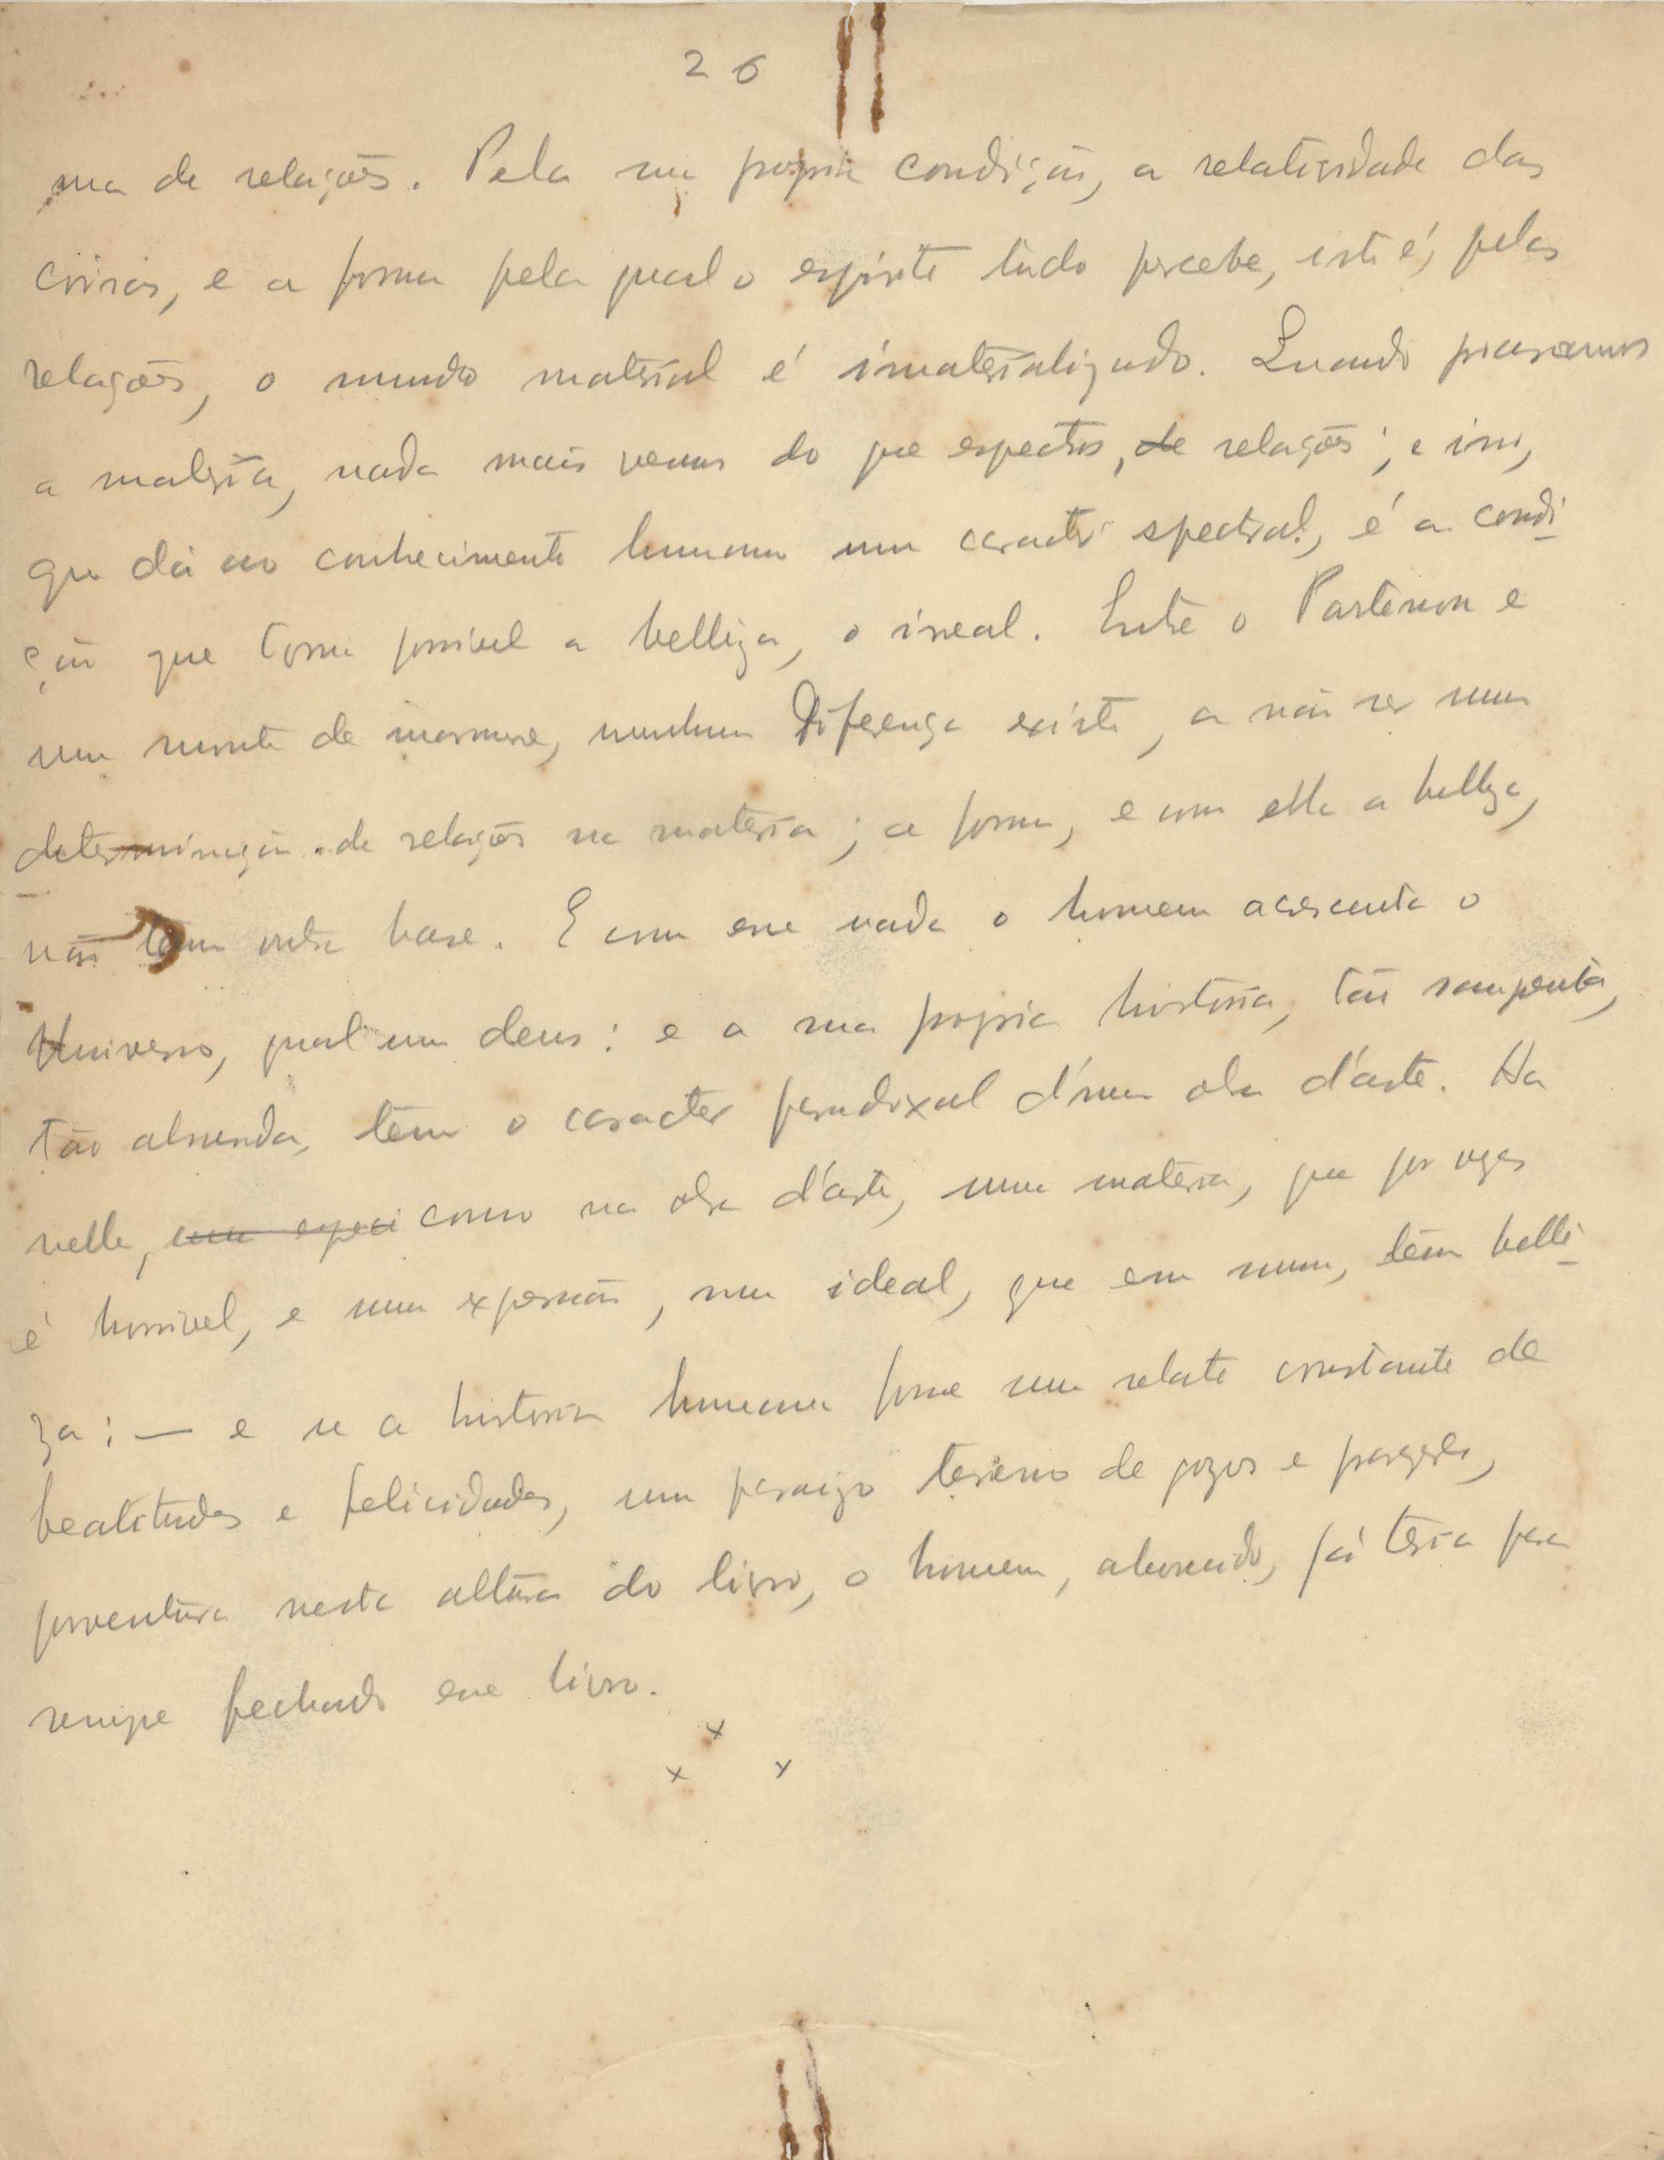 26
ma de relações. Pela sua propria condição, a relatividade das
coisas, e a forma pela qual o espirito tudo percebe, isto é, pelas
relações, o mundo material é imaterializado. Quando
a materia, nada mais vemos do que espectros, de relações; e isso,
que dá ao conhecimento humano um caracter spectral, é a condi
ção que torna possivel a belleza, o irreal. Entre o Partenon e
um monte de marmore, nenhuma differença existe, a não ser uma
determinação de relações na materia; a forma, e com ella a belleza,
não têm outra base. E com esse nada o homem acrescenta o
Universo, qual um deus: e a sua propria historia, tão sangrenta,
tão absurda, tem o caracter paradoxal d'uma obra d'arte. Ha
nella, como na obra d'arte, uma materia, que por vezes
é horrivel, e uma expressão, um ideal, que em summa, têm belle
za: — e se a historia humana fosse um relato constante de
beatitudes e felicidades, um paraizo terreno de gozos e prazeres,
porventura nesta altura do livro, o homem, aborrecido, já teria para
sempre fechado esse livro.
x
x x